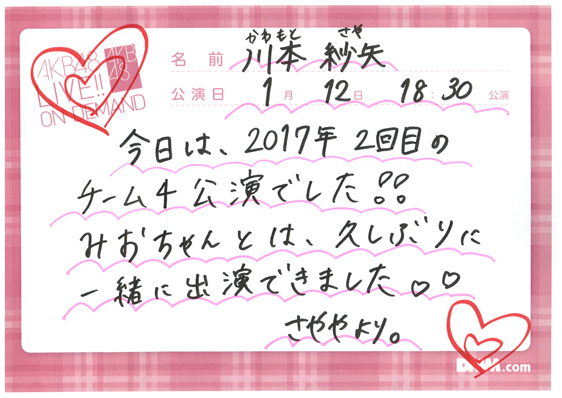 AKB48
LIVE!!
ON DEMAND
AKB
48
かわもと さや
名前 川本 紗矢
公演日 1月 12日 18:30 公演
今日は、2017年 2回目の
チーム4公演でした!!
みおちゃんとは、久しぶりに
一緒に出演できました♡♡
さややより。
DMM.com